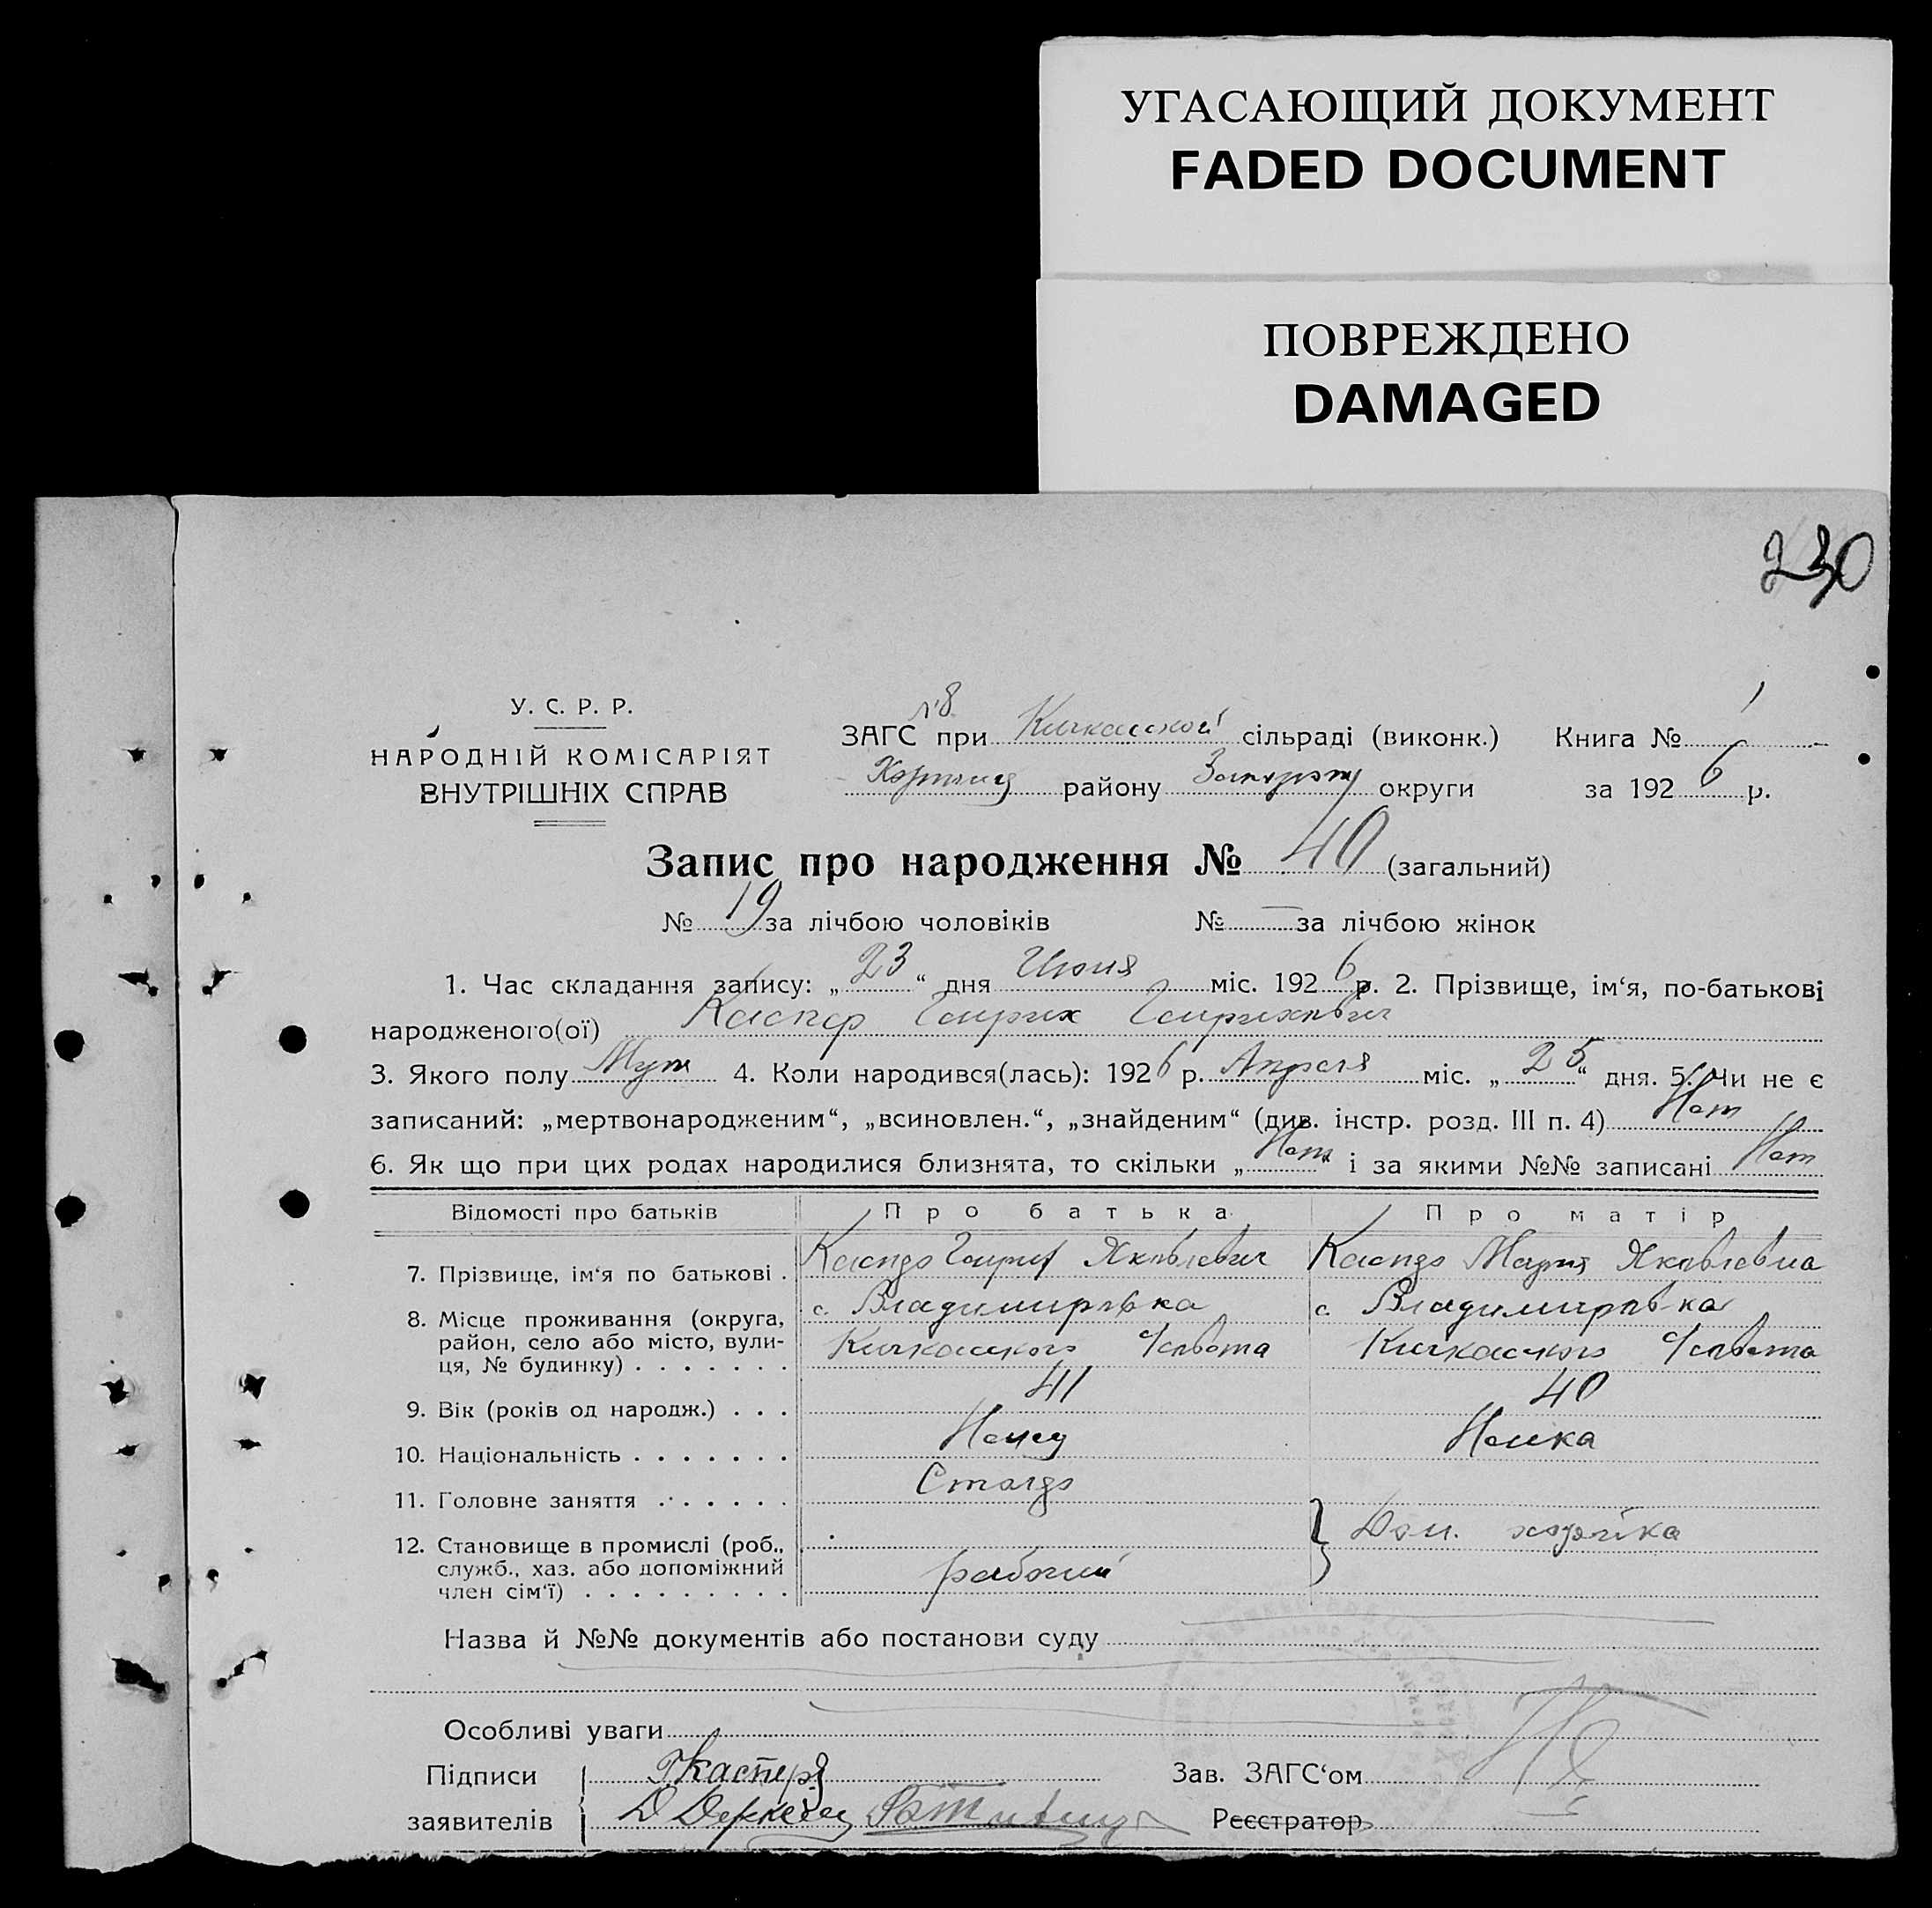 УГАСАЮЩИЙ ДОКУМЕНТ
FADED DOCUMENT
ПОВРЕЖДЕНО
DAMAGED
230
У. С. Р. Р.
НАРОДНІЙ КОМІСАРІЯТ
ВНУТРІШНІХ СПРАВ
ЗАГС при Кичкасской сільраді (виконк.) Книга № 1
району округи за 1926 р.
Запис про народження № 40 (загальний)
№ 19 за лічбою чоловіків № — за лічбою жінок
1. Час складання запису: „23“ дня Июня міс. 1926 р. 2. Прізвище, ім‘я, по-батькові
народженого(ої) Каспер Генрих Генрихович
3. Якого полу Муж 4. Коли народився(лась): 1926 р. Апреля міс. „25“ дня. 5. Чи не є
записаний: „мертвонародженим“, „всиновлен.“, „знайденим“ (див. інстр. розд. III п. 4) Нет
6. Як що при цих родах народилися близнята, то скільки „Нет“ і за якими №№ записані Нет
Відомості про батьків Про батька Про матір
7. Прізвище, ім‘я по батькові . Каспер Генрих Яковлевич Каспер Мария Яковлевна
8. Місце проживання (округа, с. Владимировка с. Владимировка
район, село або місто, вули-
ця, № будинку) . . . . . . . Кичкасского с/совета Кичкасского с/совета
9. Вік (років од народж.) . . . 41 40
10. Національність . . . . . . . Немец Немка
11. Головне заняття . . . . . . Столяр
12. Становище в промислі (роб., Дом. хозяйка
служб., хаз. або допоміжний рабочий
член сім‘ї) . . . . . . . . .
Назва й №№ документів або постанови суду
Особливі уваги
Підписи Г Каспер Зав. ЗАГС‘ом
заявителів Реєстратор